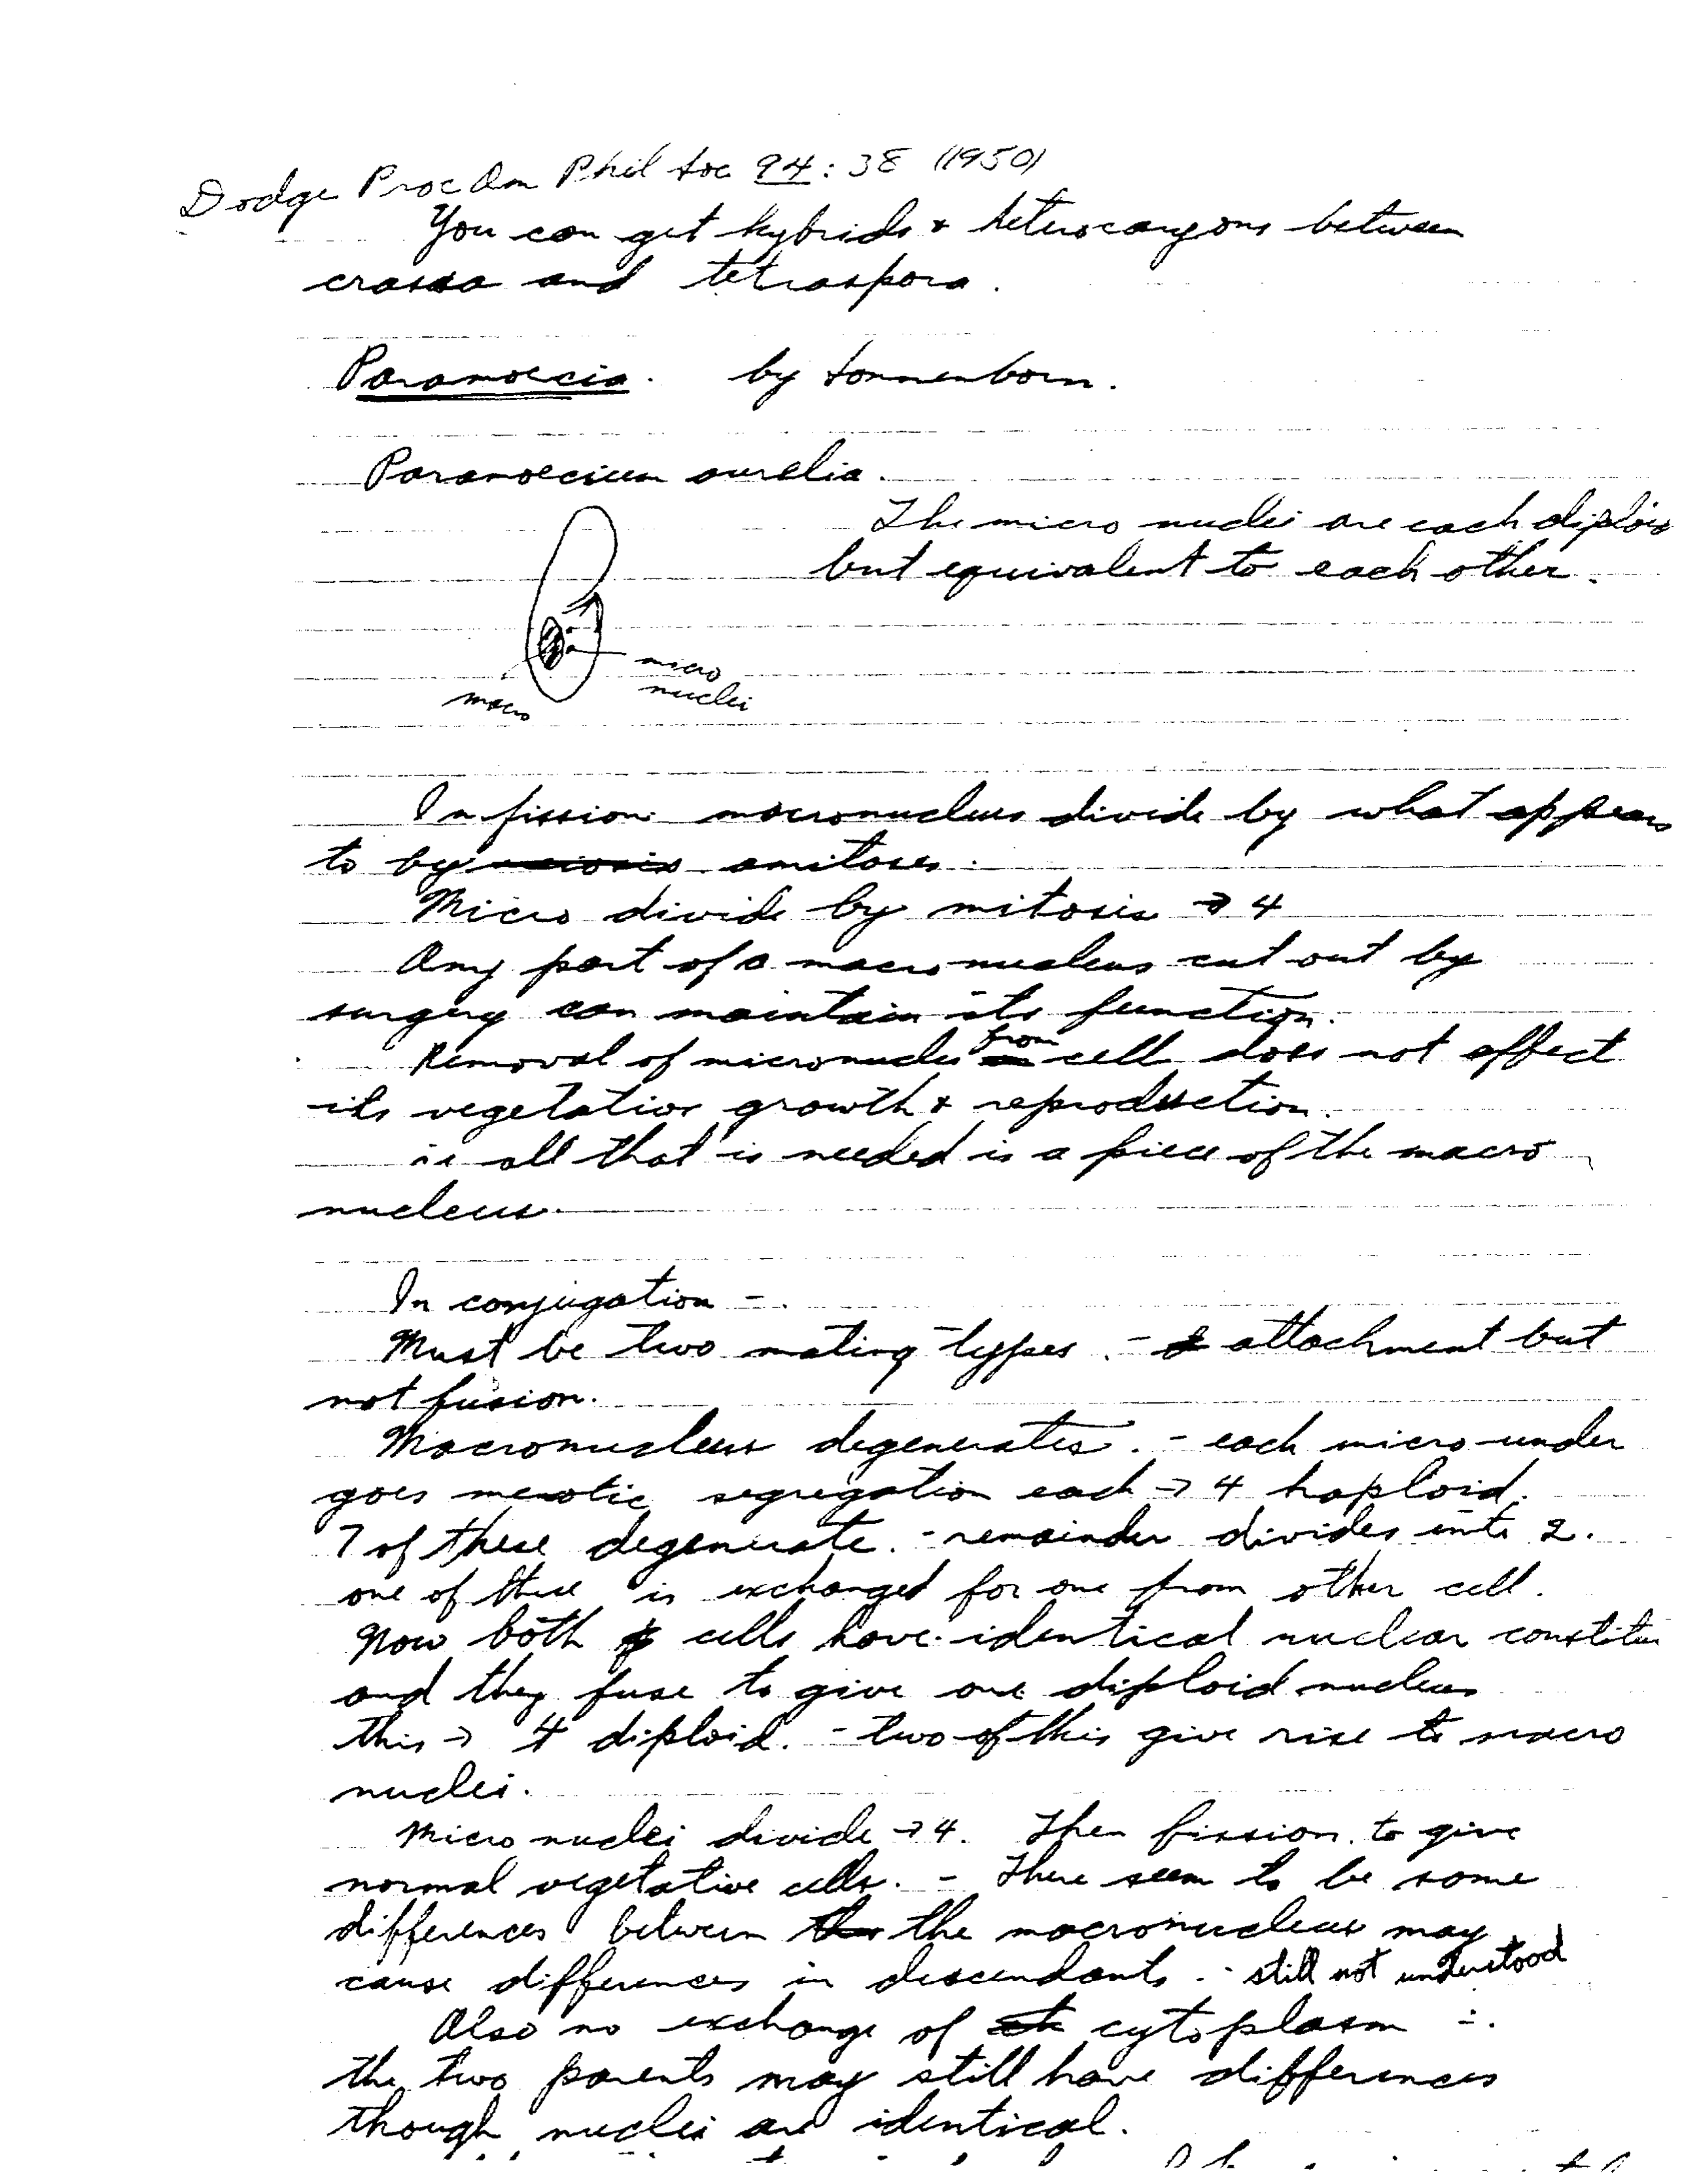 Dodge Proc Am Phil Soc 94: 38 (1950)
You can get hybrids & heterocaryons between
crassa and tetraspora.
Paramoecia. by Sonnenborn.
Paramoecium aurelia.
The micro nuclei are each diploid
but equivalent to each other.
micro
nuclei
macro
In fission macronucleus divide by what appears
to by meiosis amitoses.
Micro divide by mitosis → 4
Any part of a macronucleus cut out by
surgery can maintain its function.
Removal of micronuclei from cell does not effect
its vegetative growth & reproduction.
ie all that is needed is a piece of the macro
nucleus.
In conjugation -.
Must be two mating types. - attachment but
not fusion.
Macronucleus degenerates. - each micro under
goes meiotic segregation each → 4 haploid.
7 of these degenerate. - remainder divides into 2.
one of these is exchanged for one from other cell.
Now both cells have identical nuclear constitu
and they fuse to give one diploid nucleus
this → 4 diploid. - two of this give rise to macro
nuclei.
Micro nuclei divide → 4. Then fission to give
normal vegetative cells. - There seem to be some
differences between the the macronucleus may
cause differences in descendants. - still not understood
Also no exchange of cytoplasm ∴
the two parents may still have differences
though nuclei are identical.